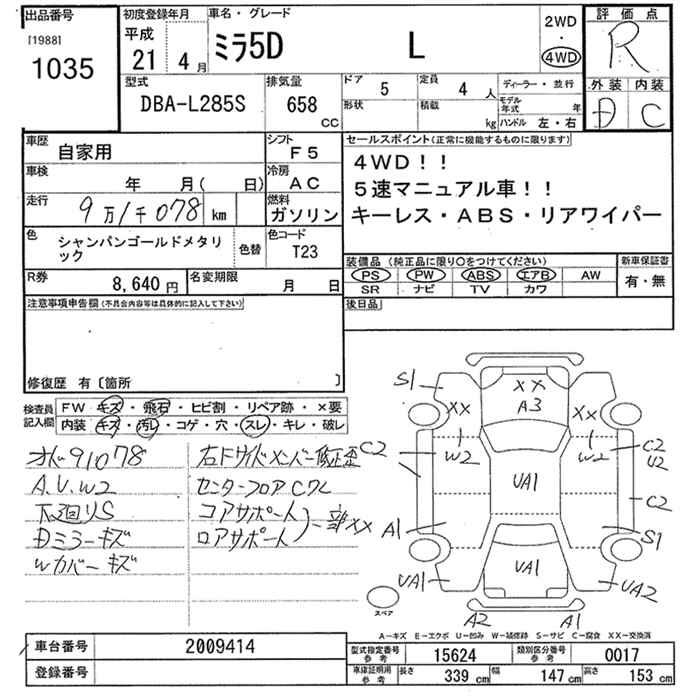 出品番号
[1988]
1035
初度登録年月
平成
21 4月
車名・グレード
ミラ5D L
2WD
・
4WD
評価点
R
外装 内装
D C
型式
DBA-L285S
排気量
658
cc
ドア 5
形状
定員 4 人
積載 kg
ディーラー・並行
モデル年式 年
ハンドル 左・右
車歴
自家用
シフト
F5
車検
年 月( 日)
冷房
AC
走行
9万1千078 km
燃料
ガソリン
色
シャンパンゴールドメタリック
色替
色コード
T23
R券
8,640 円
名変期限
月 日
セールスポイント(正常に機能するものに限ります)
4WD！！
5速マニュアル車！！
キーレス・ABS・リアワイパー
装備品(純正品に限り○をつけてください)
PS PW ABS エアB AW
SR ナビ TV カワ
新車保証書
有・無
後日品
注意事項申告欄(不具合内容等は具体的に記入して下さい)
修復歴 有〔箇所 〕
検査員記入欄
FW キズ・飛石・ヒビ割・リペア跡・×要
内装 キズ・汚レ・コゲ・穴・スレ・キレ・破レ
オドメーター91078
A.U.W2
下廻りS
Dミラーキズ
Wカバーキズ
右Fサイドメンバー修正歪
センターフロアCワレ
コアサポート
ロアサポート
一部XX
S1
XX
XX
A3
XX
S1
C2
W2
W2
C2
U2
UA1
C2
A1
S1
UA1
UA1
UA2
A2
A1
スペア
A－キズ E－エクボ U－凹み W－補修跡 S－サビ C－腐食 XX－交換済
車台番号
2009414
登録番号
型式指定番号
参考
15624
類別区分番号
参考
0017
車庫証明用
参考
長さ 339 cm
幅 147 cm
高さ 153 cm